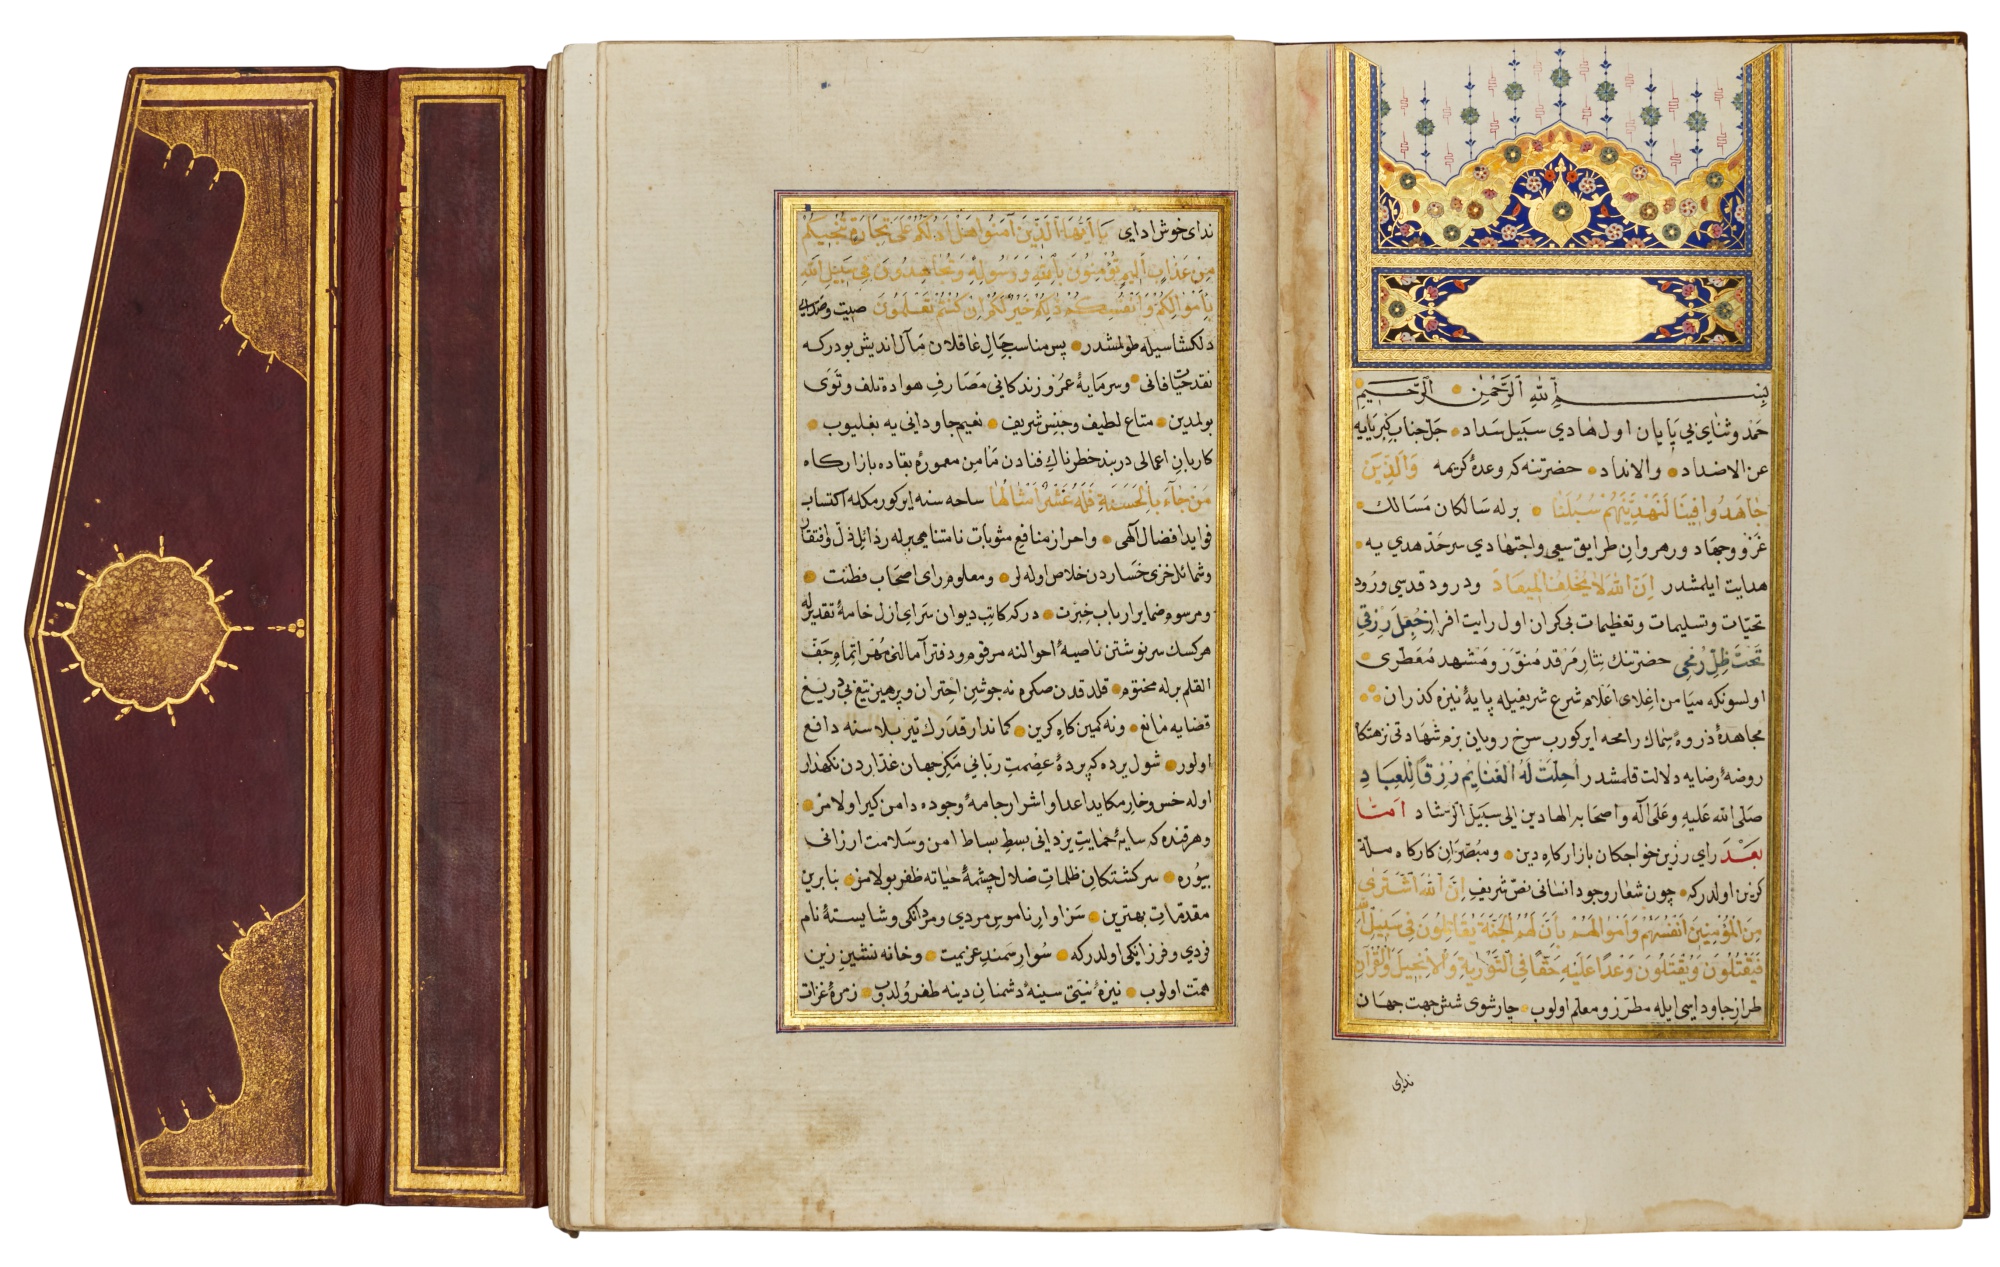 بسم الله الرحمن الرحيم
حمد و ثنای بی پایان اول هادی سبیل سداد جل جناب کبریایه
عن الاضداد والانداد حضرتنه که وعدهٔ کریمه وَالَّذِينَ
جَاهَدُوا فِينَا لَنَهْدِيَنَّهُمْ سُبُلَنَا برله سالکان مسالك
غزو و جهاد و رهروان طرایق سعی و اجتهادی سرحد هدی یه
هدایت ایلمشدر إِنَّ اللَّهَ لَا يُخْلِفُ الْمِيعَادَ و درود قدسی ورود
تحیات و تسلیمات و تعظیمات بی کران اول رایت افراز جُعِلَ رِزْقِي
تَحْتَ ظِلِّ رُمْحِي حضرتنك نثار مرقد منور و مشهد معطری
اولسونکه میامن اعلای اعلام شرع شریفیله پایهٔ نیزه کذران
مجاهده ذروهٔ سماك رامحه ایرکورب سرخ رویان بزم شهادتی نزهتکاه
روضهٔ رضایه دلالت قلمشدر اُحِلَّتْ لَهُ الْغَنَايِمُ رِزْقًا لِلْعِبَادِ
صلی الله علیه و علی آله و اصحابه الهادین الی سبیل الرشاد اما
بعد رای رزین خواجکان بازارکاه دین و مبصران کارکاه ملة
کزین اولدرکه چون شعار وجود انسانی نص شریف إِنَّ اللَّهَ اشْتَرَى
مِنَ الْمُؤْمِنِينَ أَنْفُسَهُمْ وَأَمْوَالَهُمْ بِأَنَّ لَهُمُ الْجَنَّةَ يُقَاتِلُونَ فِي سَبِيلِ اللَّهِ
فَيَقْتُلُونَ وَيُقْتَلُونَ وَعْدًا عَلَيْهِ حَقًّا فِي التَّوْرَيةِ وَالْإِنْجِيلِ وَالْقُرْآنِ
طراز جاوداسی ایله مطرز و معلم اولوب چارشوی شش جهت جهان
ندای
ندای خوش ادای يَا أَيُّهَا الَّذِينَ آمَنُوا هَلْ أَدُلُّكُمْ عَلَى تِجَارَةٍ تُنْجِيكُمْ
مِنْ عَذَابٍ أَلِيمٍ تُؤْمِنُونَ بِاللَّهِ وَرَسُولِهِ وَتُجَاهِدُونَ فِي سَبِيلِ اللَّهِ
بِأَمْوَالِكُمْ وَأَنْفُسِكُمْ ذَلِكُمْ خَيْرٌ لَكُمْ إِنْ كُنْتُمْ تَعْلَمُونَ صیت و صدای
دلکشاسیله طولمشدر پس مناسب حال عاقلان مآل اندیش بودرکه
نقد حیات فانی و سرمایهٔ عمر و زندکانی مصارف هواده تلف و توی
بولمدین متاع لطیف و جنس شریف نعیم جاودانی یه بغلیوب
کاربان اعمالی دربند خطرناك فنادن مامن معمورهٔ بقاده بازارکاه
مَنْ جَاءَ بِالْحَسَنَةِ فَلَهُ عَشْرُ أَمْثَالِهَا ساحه سنه ایرکورمکله اکتساب
فواید افضال آلهی و احراز منافع مثوبات نامتناهی برله رذائل ذل و افتقار
و شمائل خزی خساردن خلاص اوله لر و معلوم رای اصحاب فطنت
و مرسوم ضمایر ارباب خبرت درکه کاتب دیوان سرای ازل خامهٔ تقدیر له
هرکسك سرنوشتن ناصیهٔ احوالنه مرقوم و دفتر آمالنی مهر اتمام جف
القلم برله مختوم قلدقدن صکره نه جوشن احتران و پرهیز تیغ بی دریغ
قضایه مانع و نه کمین کاه کرین کماندار قدرك تیر بلاسنه دافع
اولور شول پرده که پردهٔ عصمت ربانی مکر جهان غداردن نکهدار
اوله خس و خار مکاید اعدا و اشرار جامهٔ وجوده دامن کیر اولامز
و هر قنده که سایهٔ حمایت یزدانی بسط بساط امن و سلامت ارزانی
بیوره سرکشتکان ظلمات ضلال چشمهٔ حیاته ظفر بولامز بنابرین
مقدمات بهترین سزاوار ناموس مردی و مردانکی و شایستهٔ نام
فردی و فرزانکی اولدرکه سوار سمند عزیمت و خانه نشین زین
همت اولوب نیزهٔ نیتی سینهٔ دشمنان دینه طغرولدوب زمرهٔ غزات